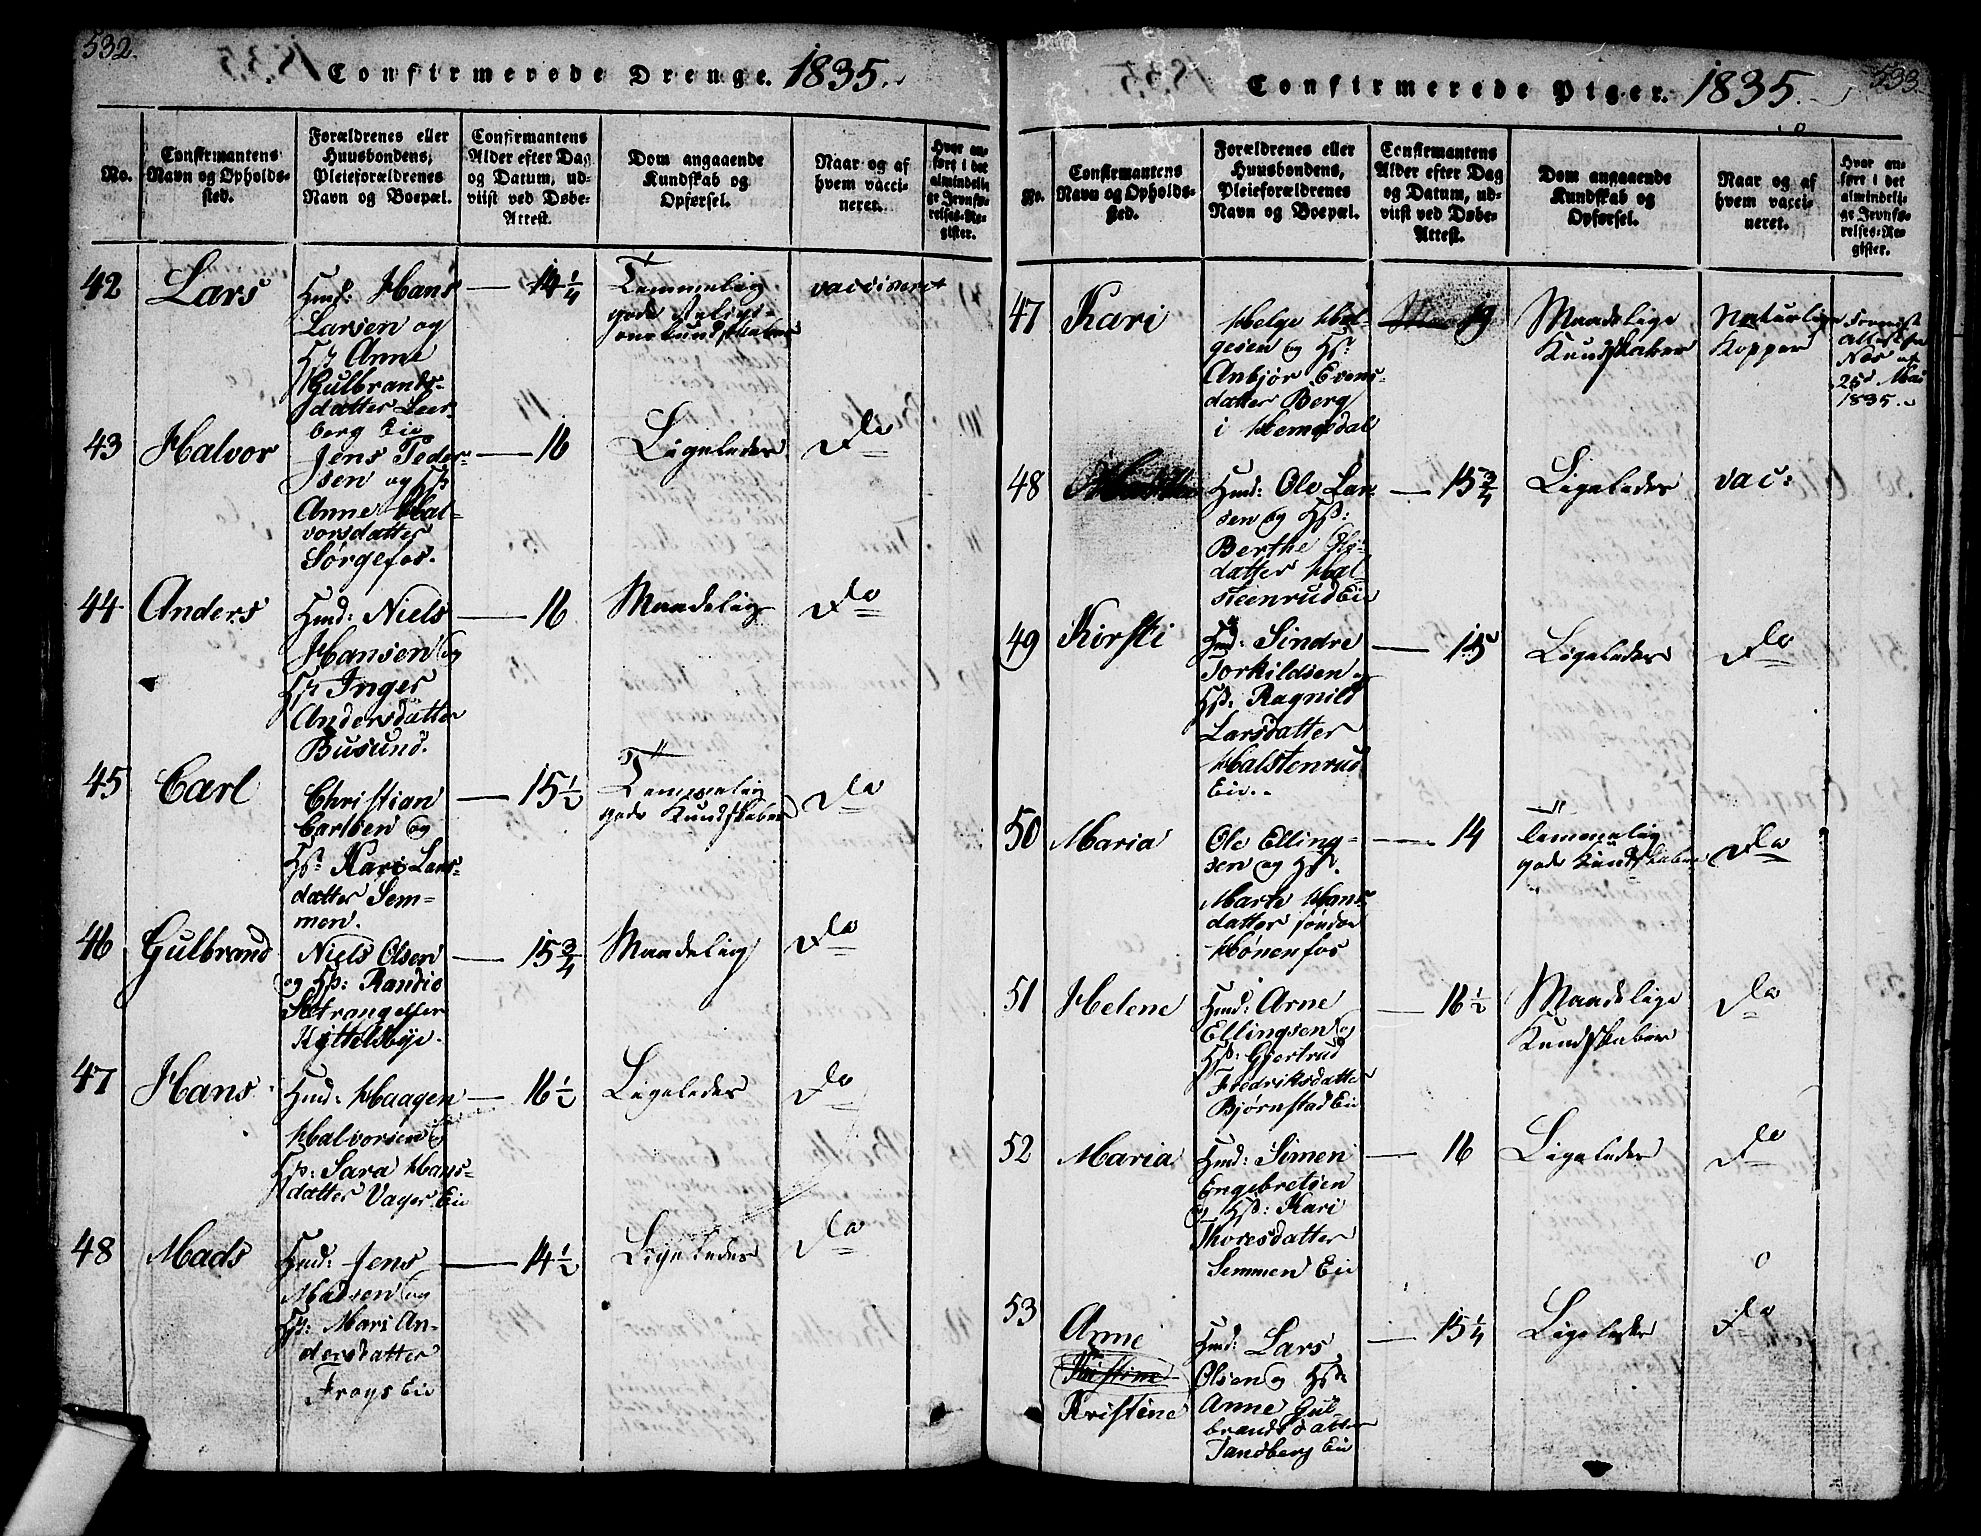 532.
Confirmerede Drenge. 1835.
No.
Confirmantens
Navn og Opholds-
sted.
Forældrenes eller
Huusbondens,
Pleieforældrenes
Navn og Boepæl.
Confirmantens
Alder efter Dag
og Datum, ud-
viist ved Døbe-
Attest.
Dom angaaende
Kundskab og
Opførsel.
Naar og af
hvem vacci-
neret.
Hvor an-
ført i det
almindeli-
ge Jevnfø-
relses-Re-
gister.
42
Lars
Hmd: Hans
Larsen og
Hs: Anne
Gulbrands-
datter Leer-
berg Eie
14 1/4
Temmelig
gode Religi-
onskundskaber
vaccineret
43
Halvor
Jens Peder-
sen og Hs:
Anne Hal-
vorsdatter
Sørgefos.
16
Ligeledes
Do
44
Anders
Hmd: Niels
Hansen og
Hs: Inger
Andersdatter
Busund.
16
Maadelig
Do
45
Carl
Christian
Carlsen og
Hs: Kari Lars-
datter Sem-
men.
15 1/2
Temmelig
gode Kundskaber
Do
46
Gulbrand
Niels Olsen
og Hs: Randie
15 3/4
Maadelig
Do
47
Hans
Hmd: Haagen
Halvorsen og
Hs: Sara Hans-
datter Vager Eie
16 1/2
Ligeledes
Do
48
Mads
Hmd: Jens
Madsen og
Hs: Mari An-
dersdatter
Frogs Eie
14 1/2
Ligeledes
Do
533.
Confirmerede Piger. 1835.
No.
Confirmantens
Navn og Opholds-
sted.
Forældrenes eller
Huusbondens,
Pleieforældrenes
Navn og Boepæl.
Confirmantens
Alder efter Dag
og Datum, ud-
viist ved Døbe-
Attest.
Dom angaaende
Kundskab og
Opførsel.
Naar og af
hvem vacci-
neret.
Hvor an-
ført i det
almindeli-
ge Jevnfø-
relses-Re-
gister.
47
Kari
Helge Hel-
gesen og Hs:
Anbjør Evens-
datter Berg
i Hemsdal
19
Maadelige
Kundskaber
Naturlige
Kopper
Nes af
25d Mai
1835.
48
Hmd: Ole Lar-
sen og Hs:
Berthe Ols-
datter Hal-
steenrud Eie
15 3/4
Ligeledes
vac:
49
Kirsti
Hmd: Sindre
Torkildsen og
Hs: Ragnild
Larsdatter
Halstenrud
Eie.
15
Ligeledes
Do
50
Maria
Ole Elling-
sen og Hs:
Marte Hans-
datter søndre
Hønenfos
14
Temmelig
gode Kundskaber
Do
51
Helene
Hmd: Arne
Ellingsen og
Hs: Gjertrud
Fredriksdatter
Bjørnstad Eie
16 1/2
Maadelige
Kundskaber
Do
52
Maria
Hmd: Simen
Engebretsen
og Hs: Kari
Thoresdatter
Semmen Eie
16
Ligeledes
Do
53
Anne
Kristine
Kristine
Hmd: Lars
Olsen og Hs:
Anne Gul-
brandsdatter
Tandberg Eie
15 1/4
Ligeledes
Do